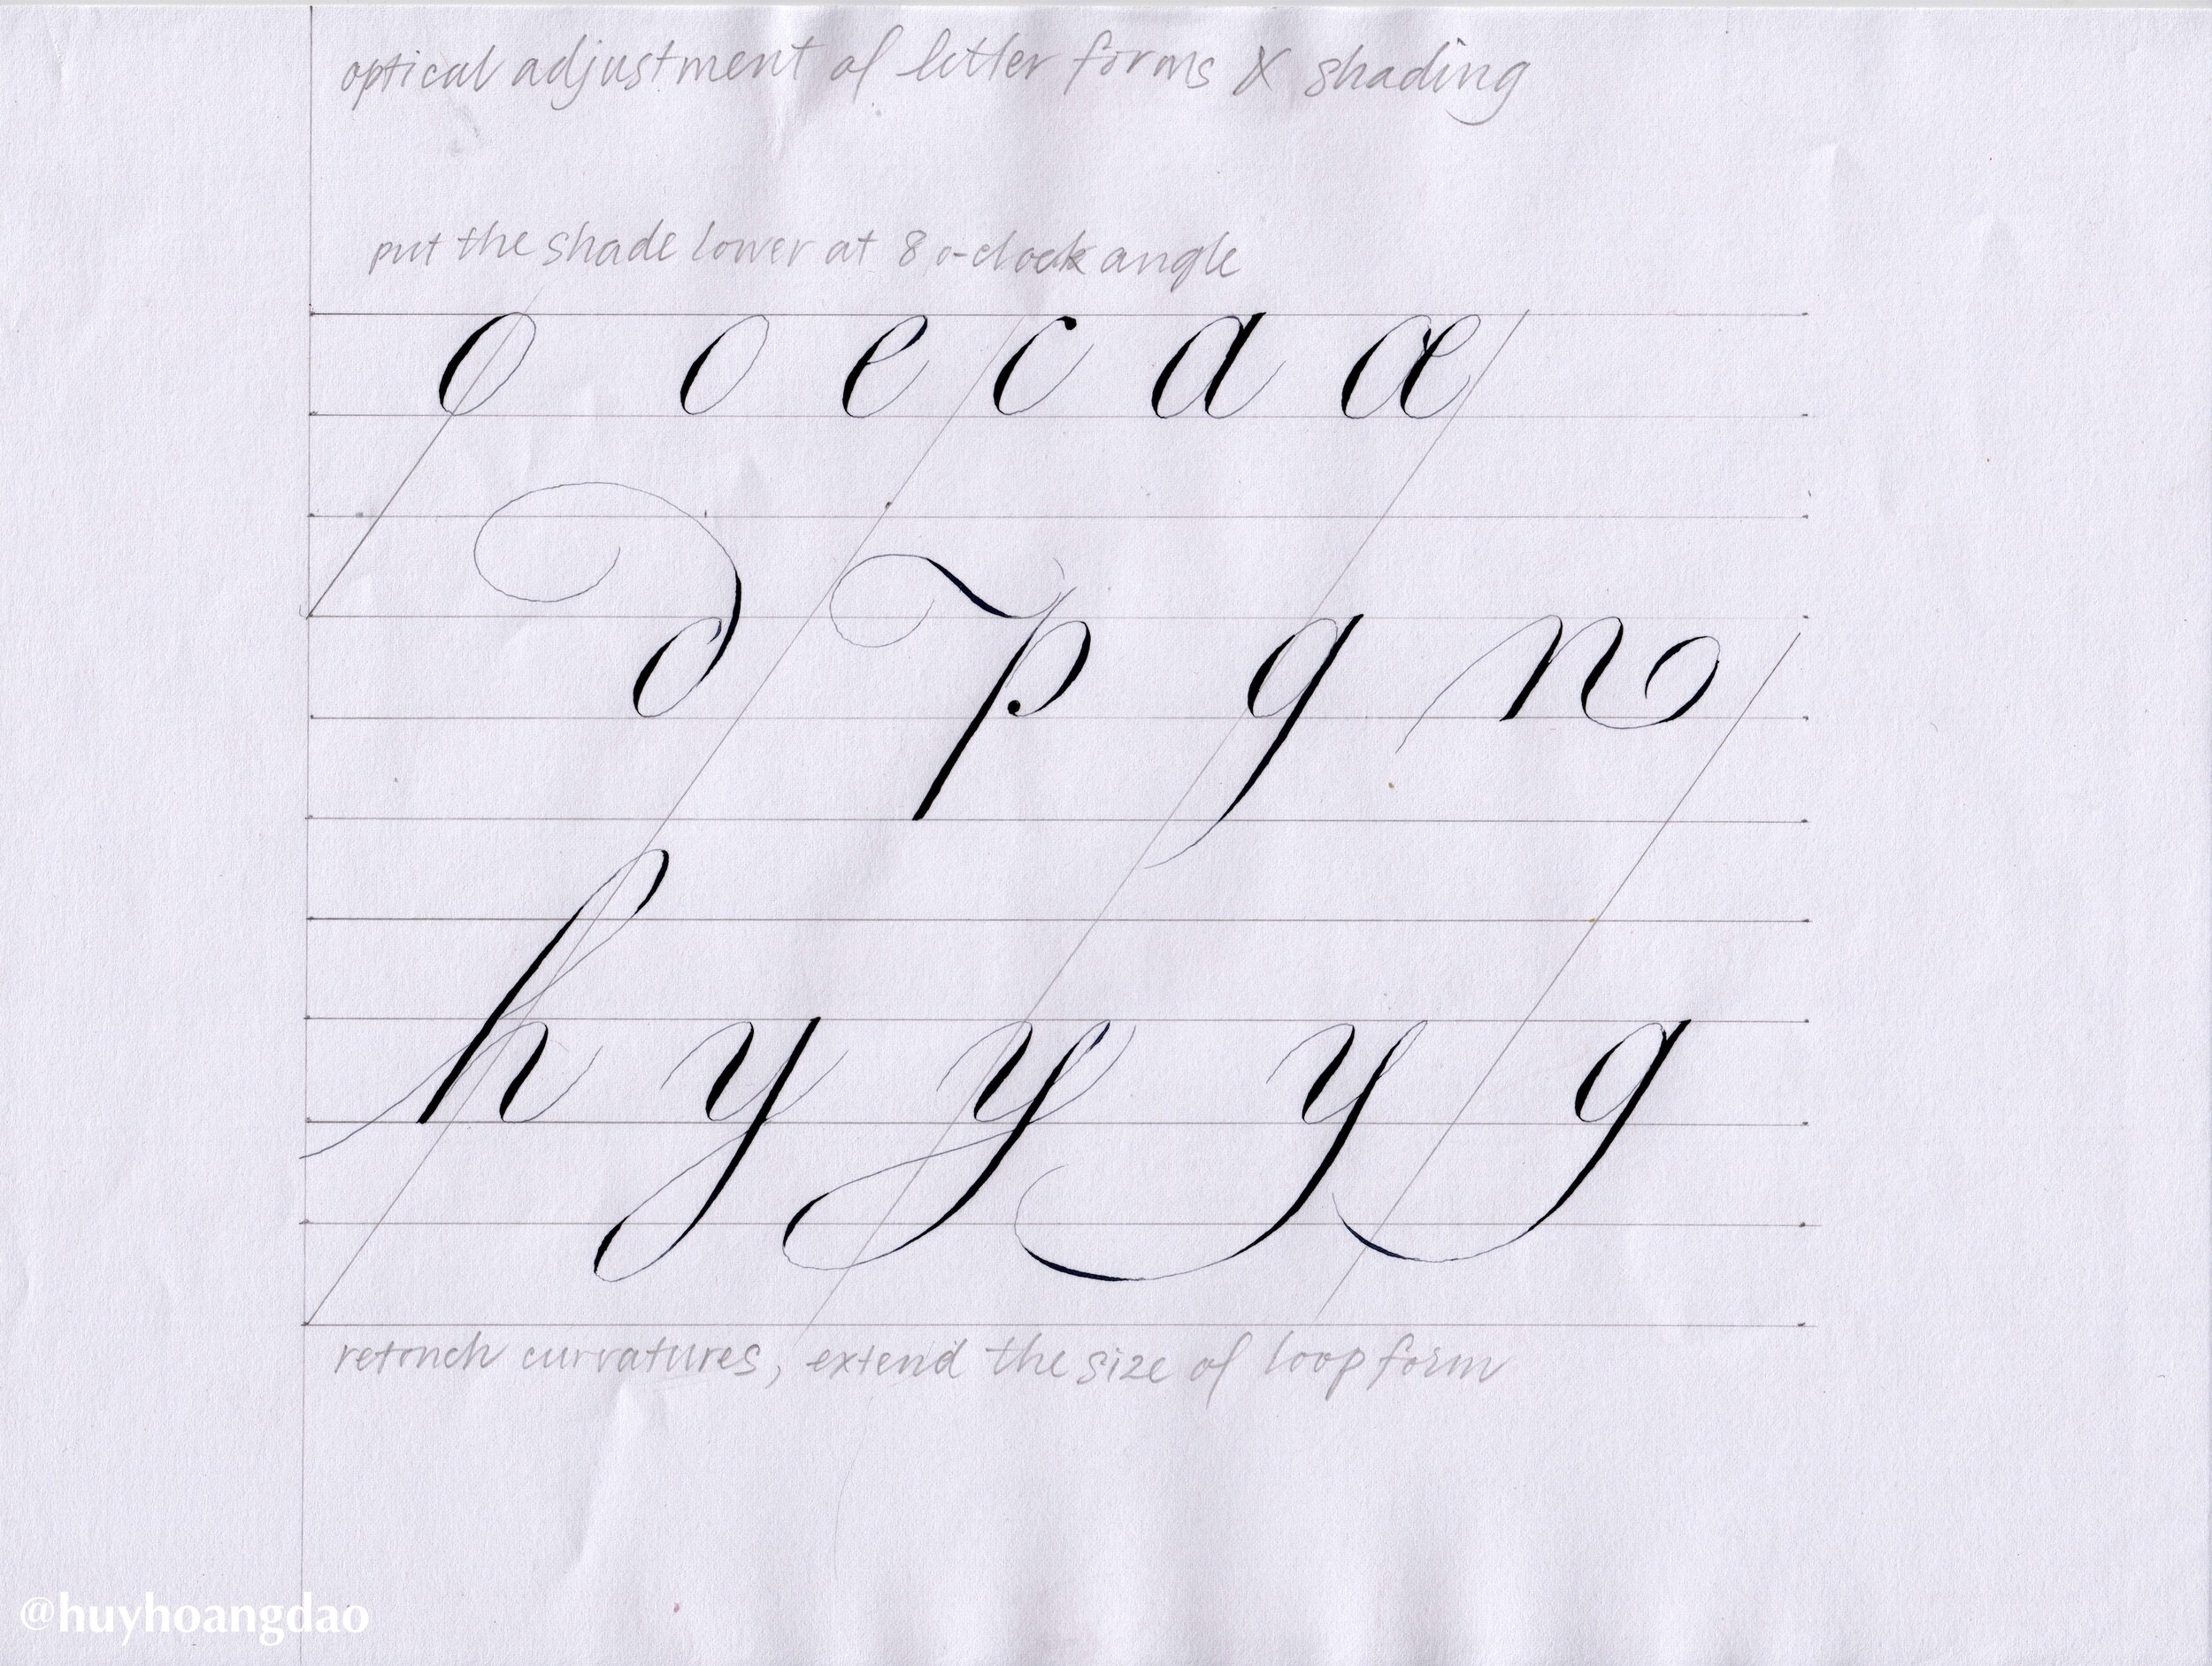 optical adjustment of letter forms & shading
put the shade lower at 8 o-clock angle
o o e c a æ
∂ p q n
h y y y q
retouch curvatures, extend the size of loop form
@huyhoangdao